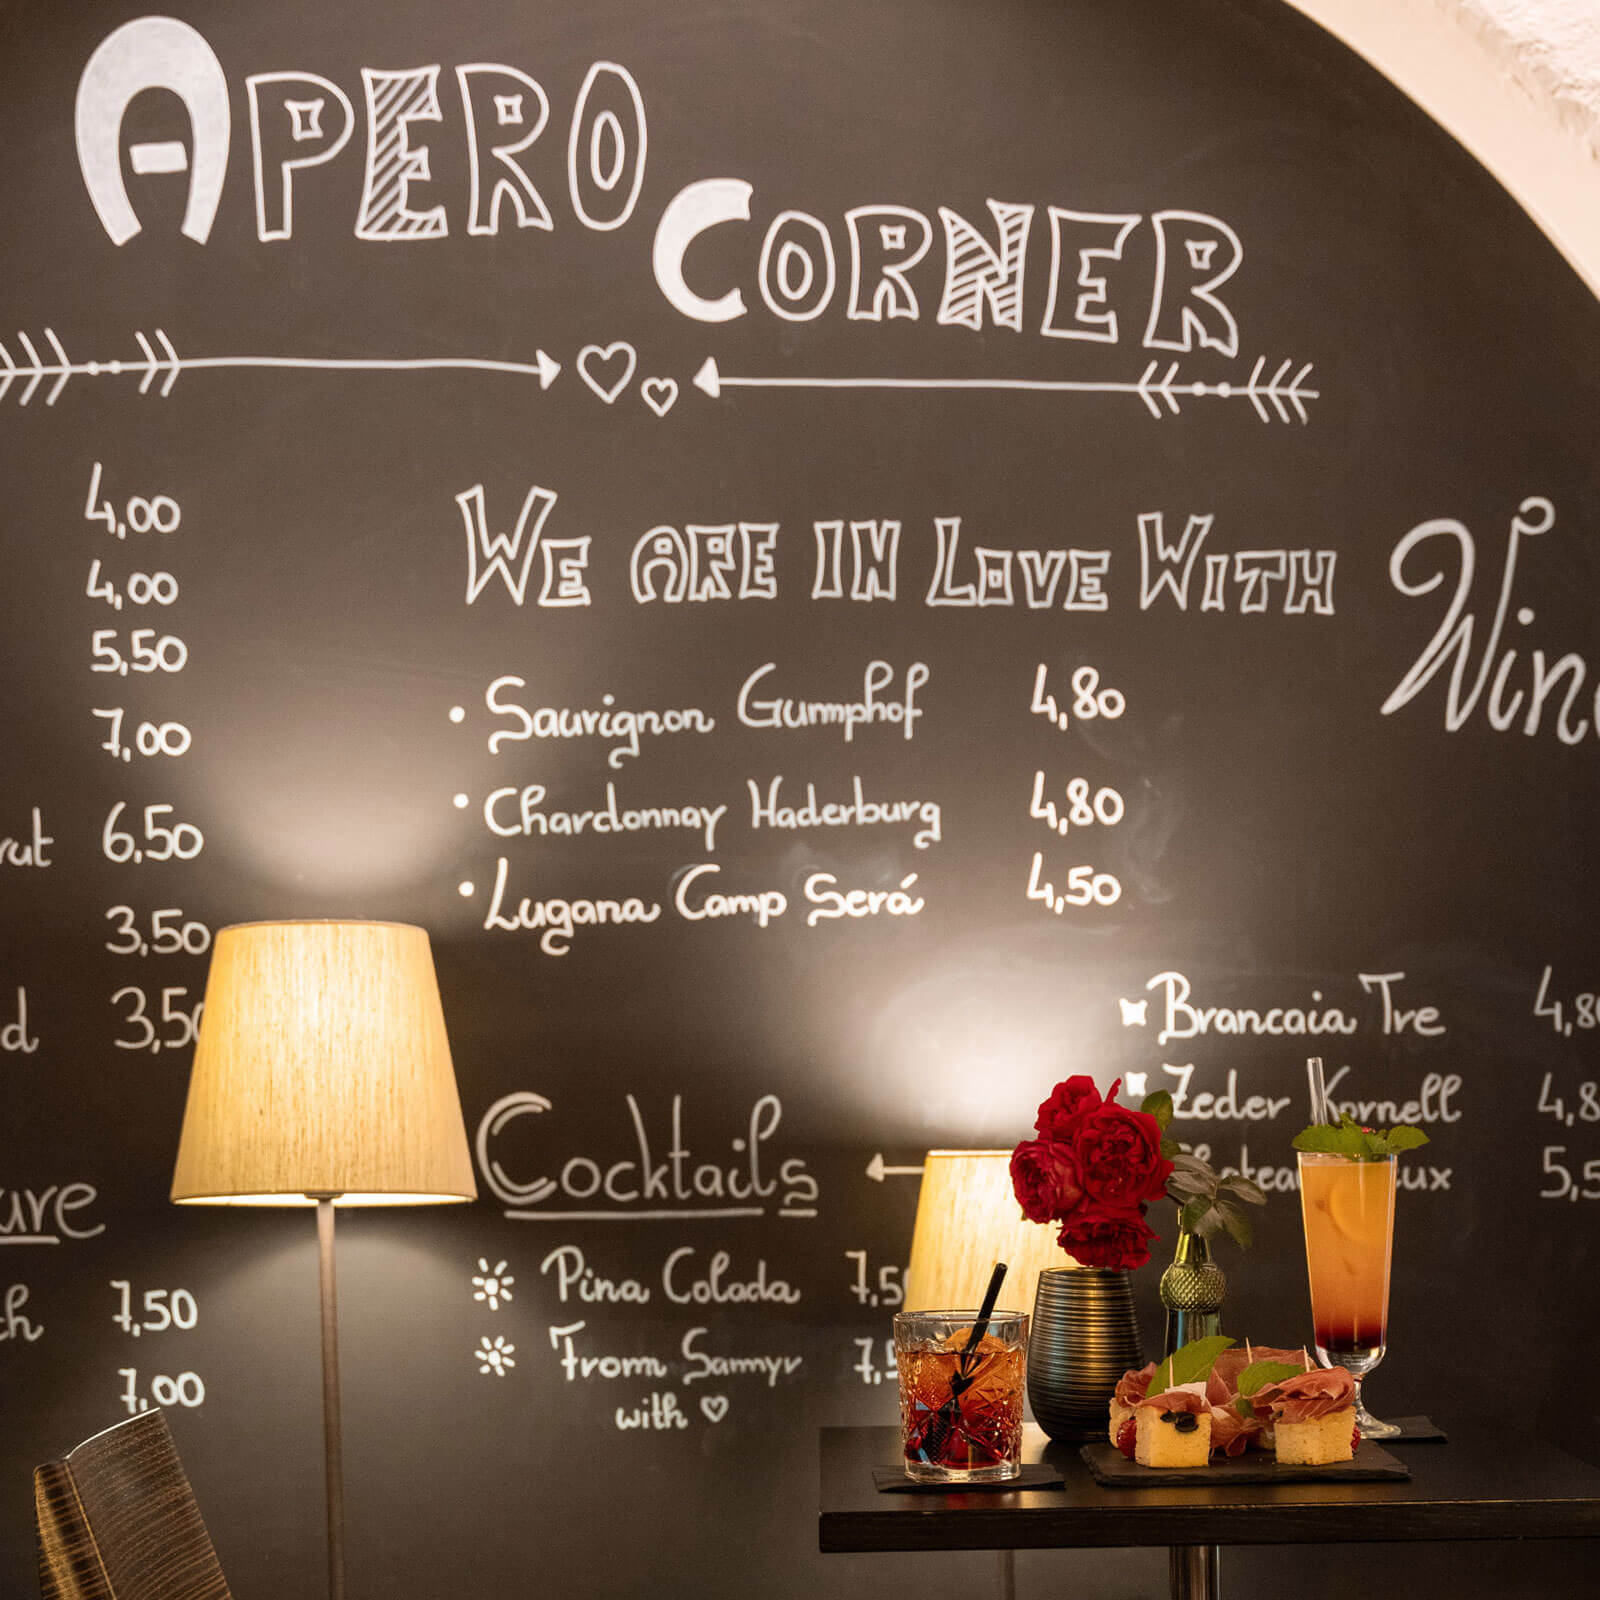 APERO
CORNER
4,00
4,00
5,50
7,00
6,50
3,50
3,50
WE ARE IN LOVE WITH
• Sauvignon Gumphof 4,80
• Chardonnay Haderburg 4,80
• Lugana Camp Será 4,50
Brancaia Tre 4,80
Zeder Kornell 4,8
5,5
Cocktails
Pina Colada 7,5
From Samyr 7,5
with ♡
7,50
7,00